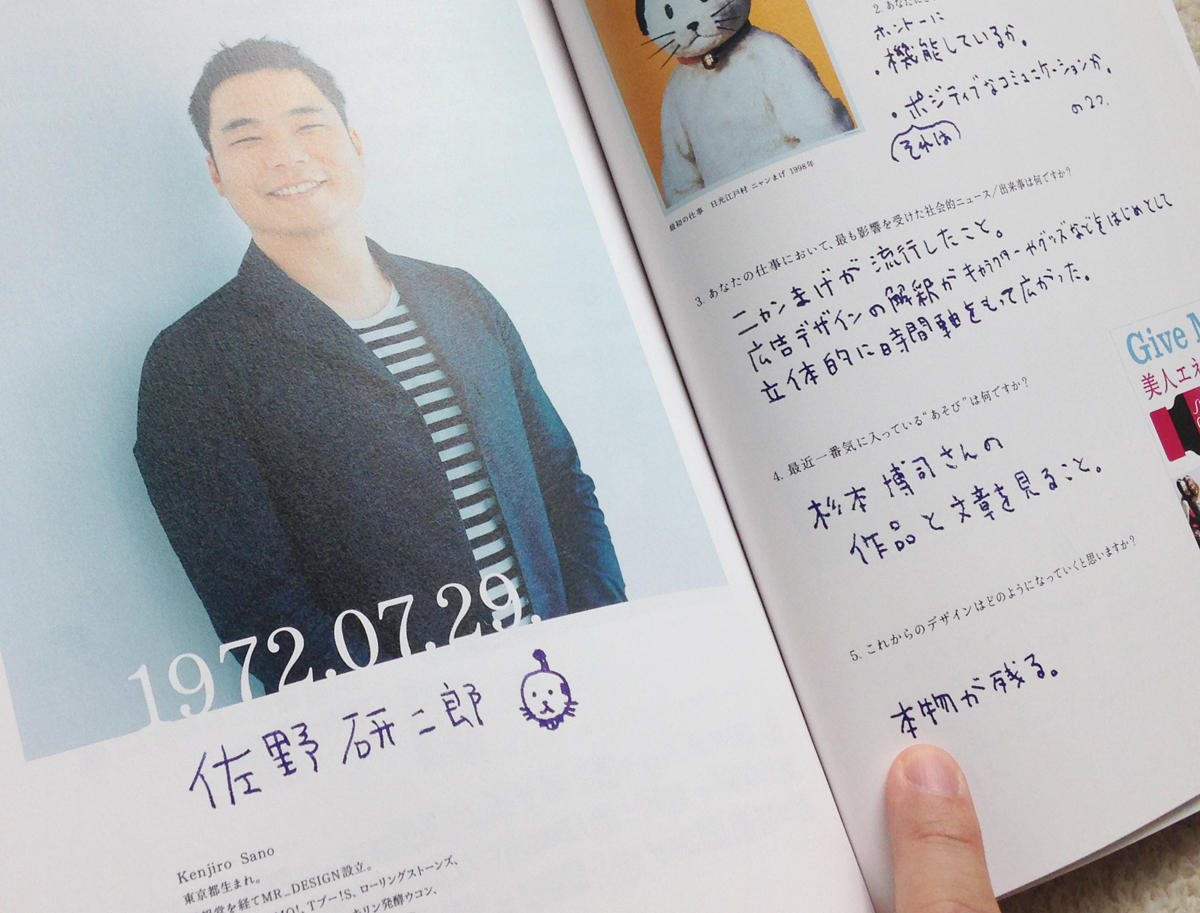 1972.07.29.
佐野 研二郎
Kenjiro Sano
東京都生まれ。
を経てMR_DESIGN設立。
Tブー!S、ローリングストーンズ、
キリン発酵ウコン、
ホントーに
・機能しているか。
・ポジティブなコミュニケーションか。
(それは)
の2つ。
最初の仕事 日光江戸村 ニャンまげ 1998年
3. あなたの仕事において、最も影響を受けた社会的ニュース/出来事は何ですか?
ニャンまげが流行したこと。
広告デザインの解釈がキャラクターやグッズなどをはじめとして
立体的に時間軸をもって広がった。
4. 最近一番気に入っている“あそび”は何ですか?
杉本 博司さんの
作品と文章を見ること。
5. これからのデザインはどのようになっていくと思いますか?
本物が残る。
Give
美人エネ